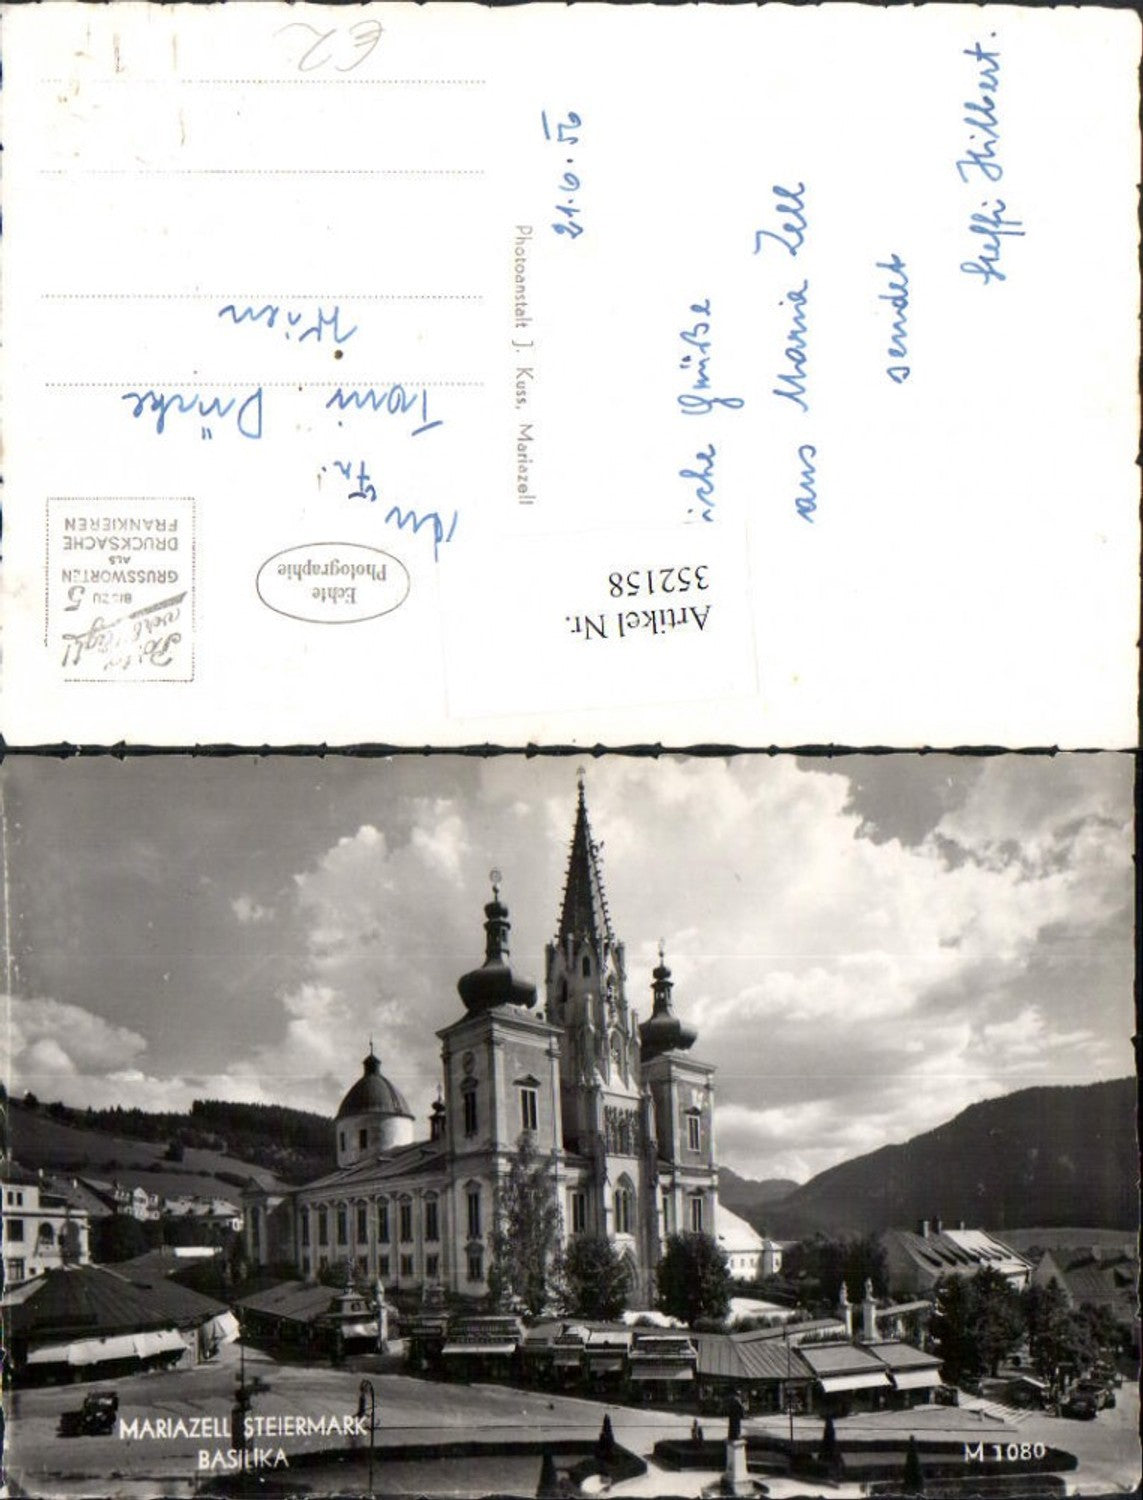 21.6.56
ische Grüße
aus Maria Zell
sendet
Steffi Hilbert.
Photoanstalt J. Kuss, Mariazell
An
Fr.
Tromi
Wien
Echte
Photographie
BIS ZU 5
GRUSSWORTEN
ALS
DRUCKSACHE
FRANKIEREN
Artikel Nr.
352158
€2
MARIAZELL STEIERMARK
BASILIKA
M 1080